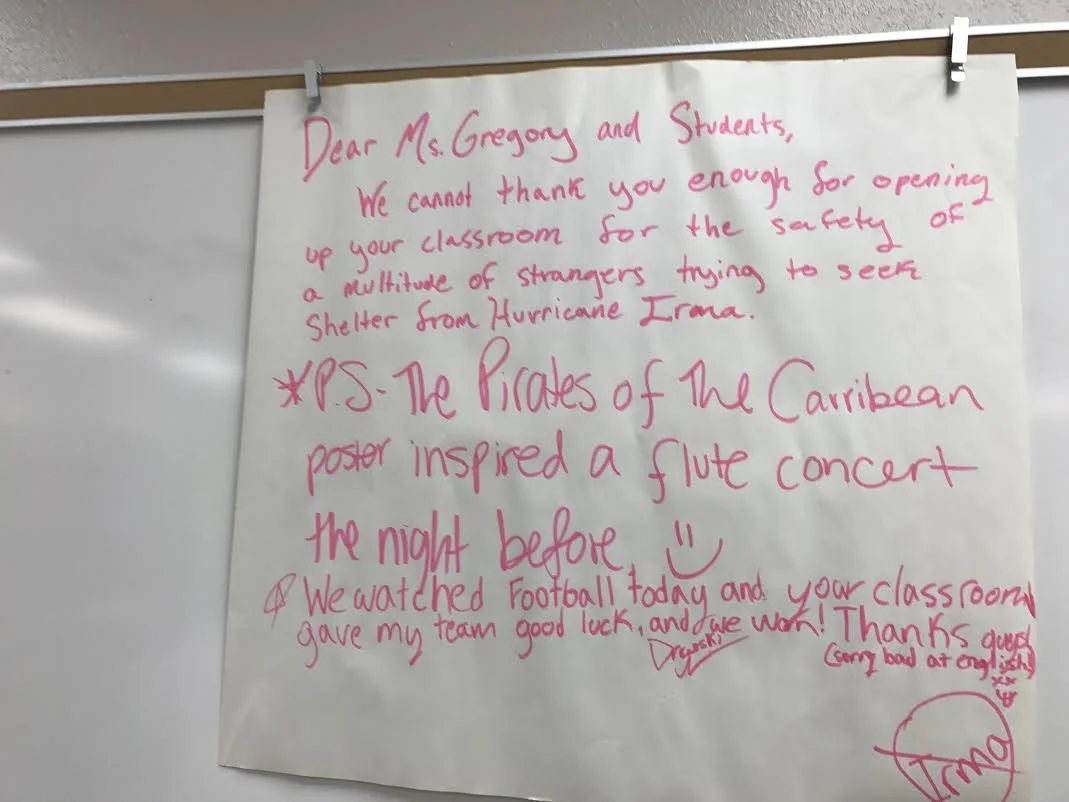 Dear Ms. Gregory and Students,
We cannot thank you enough for opening
up your classroom for the safety of
a multitude of strangers trying to seek
Shelter from Hurricane Irma.
*P.S- The Pirates of The Carribean
poster inspired a flute concert
the night before
We watched Football today and your classroom
gave my team good luck, and we won! Thanks guys
(sorry bad at english!)
xx
Irma